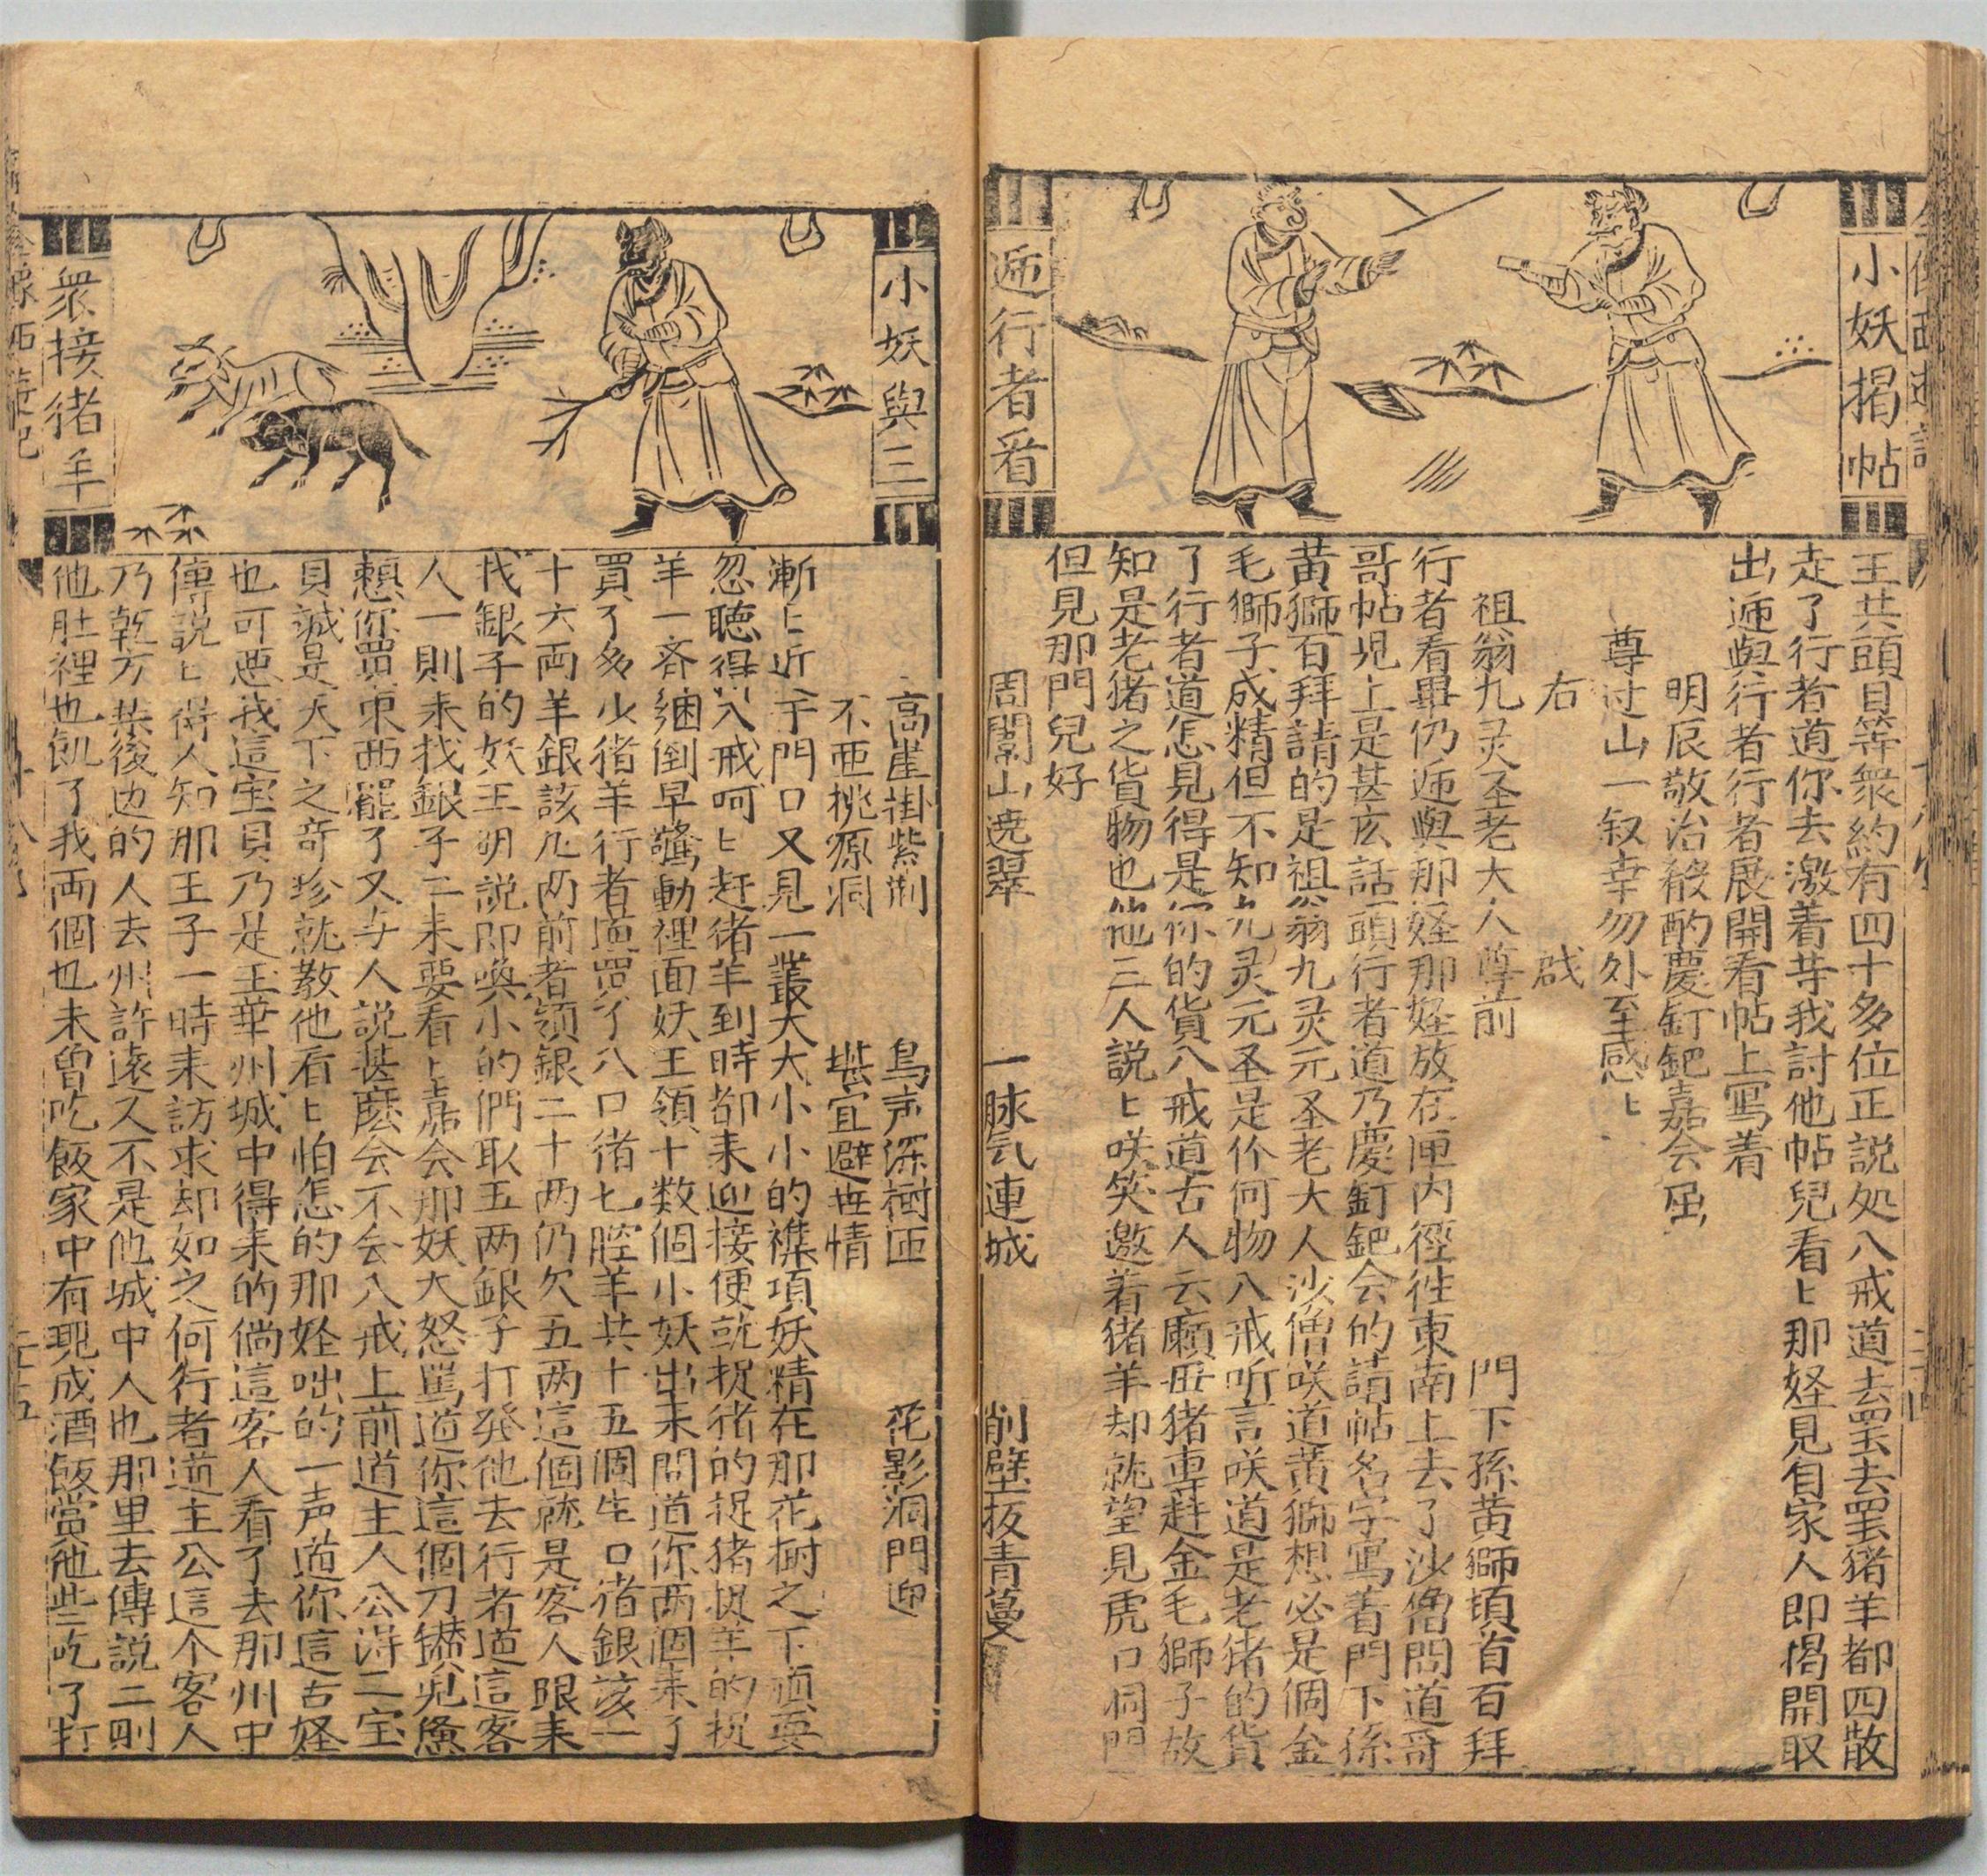 小妖揭帖
逓行者看
王共頭目等衆約有四十多位正説処八戒道去罢去罢猪羊都四散
走了行者道你去邀着等我討他帖兒看〻那怪見自家人即揭開取
出逓與行者行者展開看帖上寫着
明辰敬治殽酌慶釘鈀嘉会屈
尊过山一叙幸勿外至感〻
右
啟
祖翁九灵圣老大人尊前
門下孫黄獅頓首百拜
行者看畢仍逓與那怪那怪放在匣内徑往東南上去了沙僧問道哥
哥帖兒上是甚広話頭行者道乃慶釘鈀会的請帖名字寫着門下孫
黄獅百拜請的是祖翁九灵元圣老大人沙僧咲道黄獅想必是個金
毛獅子成精但不知九灵元圣是个何物八戒听言咲道是老猪的貨
了行者道怎見得是你的貨八戒道古人云癩母猪專赶金毛獅子故
知是老猪之貨物也他三人説〻咲笑邀着猪羊却就望見虎口洞門
但見那門兒好
周圍山遶翠　一脉気連城　削壁扳青蔓
小妖與三
衆接猪羊
高崖掛紫荆　鳥声深樹匝　花影洞門迎
不亜桃源洞　堪宜避世情
漸〻近于門口又見一叢大大小小的襍項妖精在那花樹之下頑耍
忽聽得八戒呵〻赶猪羊到時都来迎接便就捉猪的捉猪捉羊的捉
羊一斉綑倒早驚動裡面妖王領十数個小妖出来問道你两個来了
買了多少猪羊行者道買了八口猪七腔羊共十五個生口猪銀該一
十六両羊銀該九两前者領銀二十两仍欠五两這個就是客人跟来
找銀子的妖王听説即喚小的們取五两銀子打發他去行者道這客
人一則来找銀子二来要看〻嘉会那妖大怒罵道你這個刁鑽兒憊
懶你買東西罷了又与人説甚麽会不会八戒上前道主人公得二宝
貝誠是天下之奇珍就教他看〻怕怎的那怪咄的一声道你這古怪
也可悪我這宝貝乃是玉華州城中得来的倘這客人看了去那州中
傳説〻得人知那王子一時来訪求却如之何行者道主公這个客人
乃乾方集後边的人去州許遠又不是他城中人也那里去傳説二則
他肚裡也飢了我両個也未曾吃飯家中有現成酒飯賞他些吃了打